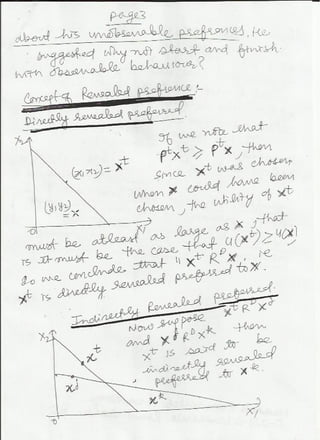 page3
about his unobservable prefrances. He
suggested why not start and finish
with observable behaviour?
Concept of Revealed prefrence :-
Directly revealed preferred
X2
(x1 x2) = xt
(y1 y2) = x
0
X1
If we note that
ptxt ≥ ptx, then
since xt was chosen
when x could have been
chosen, the utility of xt
must be atleast as large as x, that
is it must be the case that u(xt) ≥ u(x)
So we conclude that "xt RD x, ie
xt is directly revealed preferred to x.
Indirectly Revealed preferred.
Now suppose xt RD xj
and xj RD xk then
xt is said to be
indirectly revealed
preferred to xk.
X2
xt
xj
xk
0
X1